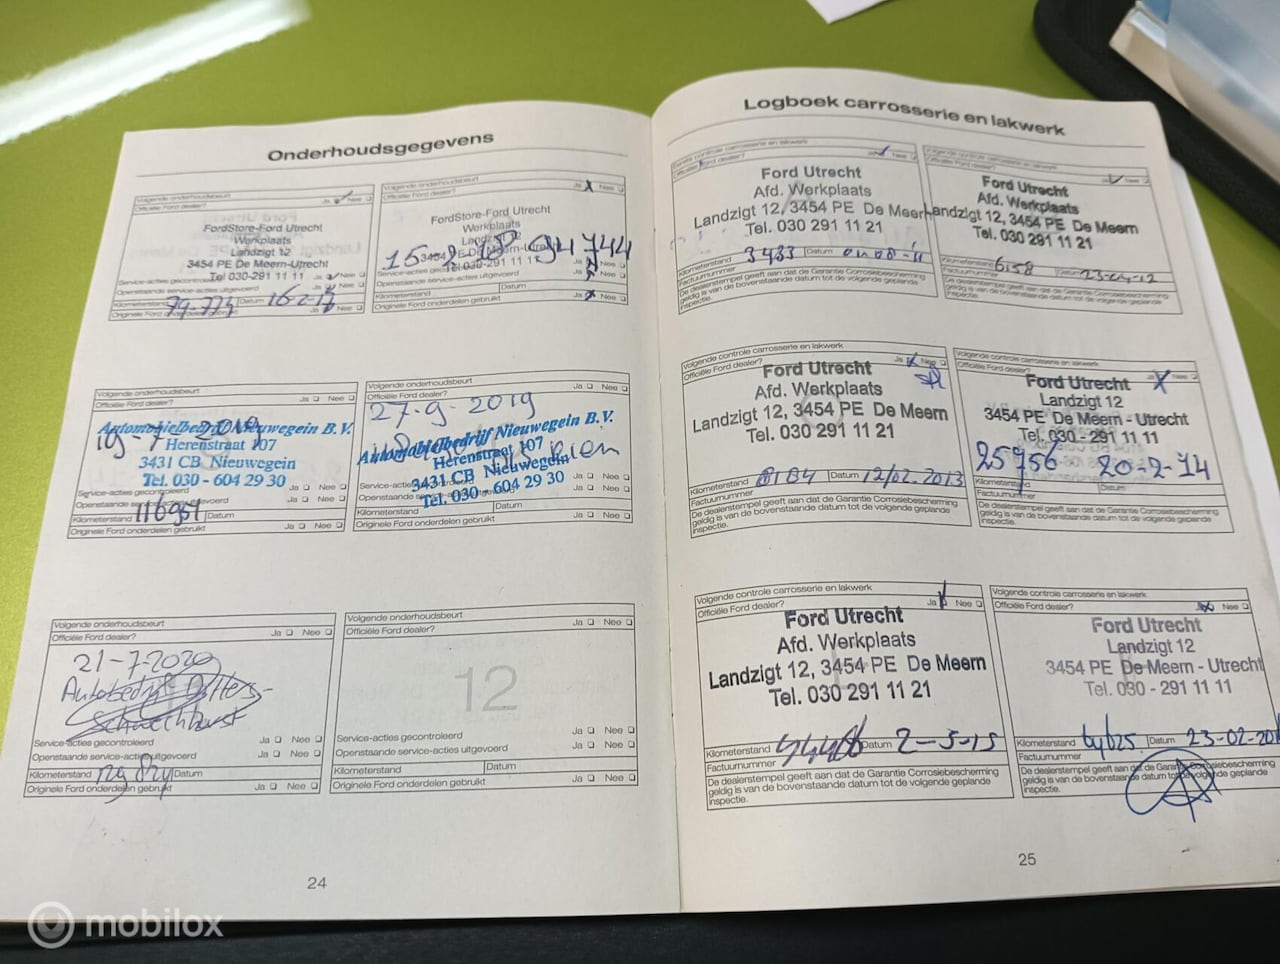 Onderhoudsgegevens
Volgende onderhoudsbeurt
Officiële Ford dealer? Ja Nee
FordStore-Ford Utrecht
Werkplaats
Landzigt 12
3454 PE De Meern-Utrecht
Tel 030-291 11 11
Service-acties gecontroleerd Ja Nee
Openstaande service-acties uitgevoerd Ja Nee
Kilometerstand 79.773 Datum 16-2-17
Originele Ford onderdelen gebruikt Ja Nee
Volgende onderhoudsbeurt
Officiële Ford dealer? Ja Nee
FordStore-Ford Utrecht
Werkplaats
Landzigt 12
15-2-18 94744
3454 PE De Meern-Utrecht
Tel 030-291 11 11
Service-acties gecontroleerd
Openstaande service-acties uitgevoerd
Kilometerstand Datum
Originele Ford onderdelen gebruikt Ja Nee
Volgende onderhoudsbeurt
Officiële Ford dealer? Ja Nee
Automobielbedrijf Nieuwegein B.V.
Herenstraat 107
3431 CB Nieuwegein
Tel. 030 - 604 29 30
Service-acties gecontroleerd Ja Nee
Openstaande service-acties uitgevoerd Ja Nee
Kilometerstand Datum
Originele Ford onderdelen gebruikt Ja Nee
Volgende onderhoudsbeurt
Officiële Ford dealer? Ja Nee
27-9-2019
Automobielbedrijf Nieuwegein B.V.
Herenstraat 107
3431 CB Nieuwegein
Tel. 030 - 604 29 30
Service-acties gecontroleerd
Openstaande service-acties
Kilometerstand Datum
Originele Ford onderdelen gebruikt Ja Nee
Volgende onderhoudsbeurt
Officiële Ford dealer? Ja Nee
21-7-2020
Service-acties gecontroleerd Ja Nee
Openstaande service-acties uitgevoerd Ja Nee
Kilometerstand Datum
Originele Ford onderdelen gebruikt Ja Nee
Volgende onderhoudsbeurt
Officiële Ford dealer? Ja Nee
12
Service-acties gecontroleerd Ja Nee
Openstaande service-acties uitgevoerd Ja Nee
Kilometerstand Datum
Originele Ford onderdelen gebruikt Ja Nee
24
Logboek carrosserie en lakwerk
Eerste controle carrosserie en lakwerk
Officiële Ford dealer? Nee
Ford Utrecht
Afd. Werkplaats
Landzigt 12, 3454 PE De Meern
Tel. 030 291 11 21
Kilometerstand 3433 Datum
Factuurnummer
De dealerstempel geeft aan dat de Garantie Corrosiebescherming
geldig is van de bovenstaande datum tot de volgende geplande
inspectie.
Volgende controle carrosserie en lakwerk
Officiële Ford dealer? Nee
Ford Utrecht
Afd. Werkplaats
Landzigt 12, 3454 PE De Meern
Tel. 030 291 11 21
Kilometerstand 6158 Datum 23-04-12
Factuurnummer
De dealerstempel geeft aan dat de Garantie Corrosiebescherming
geldig is van de bovenstaande datum tot de volgende geplande
inspectie.
Volgende controle carrosserie en lakwerk
Officiële Ford dealer? Ja Nee
Ford Utrecht
Afd. Werkplaats
Landzigt 12, 3454 PE De Meern
Tel. 030 291 11 21
Kilometerstand 8184 Datum 12/02.2013
Factuurnummer
De dealerstempel geeft aan dat de Garantie Corrosiebescherming
geldig is van de bovenstaande datum tot de volgende geplande
inspectie.
Volgende controle carrosserie en lakwerk
Officiële Ford dealer? Nee
Ford Utrecht
Landzigt 12
3454 PE De Meern - Utrecht
Tel. 030 - 291 11 11
25956 20-2-14
Kilometerstand
Factuurnummer Datum
De dealerstempel geeft aan dat de Garantie Corrosiebescherming
geldig is van de bovenstaande datum tot de volgende geplande
inspectie.
Volgende controle carrosserie en lakwerk
Officiële Ford dealer? Ja Nee
Ford Utrecht
Afd. Werkplaats
Landzigt 12, 3454 PE De Meern
Tel. 030 291 11 21
Kilometerstand Datum 2-3-15
Factuurnummer
De dealerstempel geeft aan dat de Garantie Corrosiebescherming
geldig is van de bovenstaande datum tot de volgende geplande
inspectie.
Volgende controle carrosserie en lakwerk
Officiële Ford dealer? Nee
Ford Utrecht
Landzigt 12
3454 PE De Meern - Utrecht
Tel. 030 - 291 11 11
Kilometerstand 64625 Datum
Factuurnummer
De dealerstempel geeft aan dat de Garantie Corrosiebescherming
geldig is van de bovenstaande datum tot de volgende geplande
inspectie.
25
mobilox